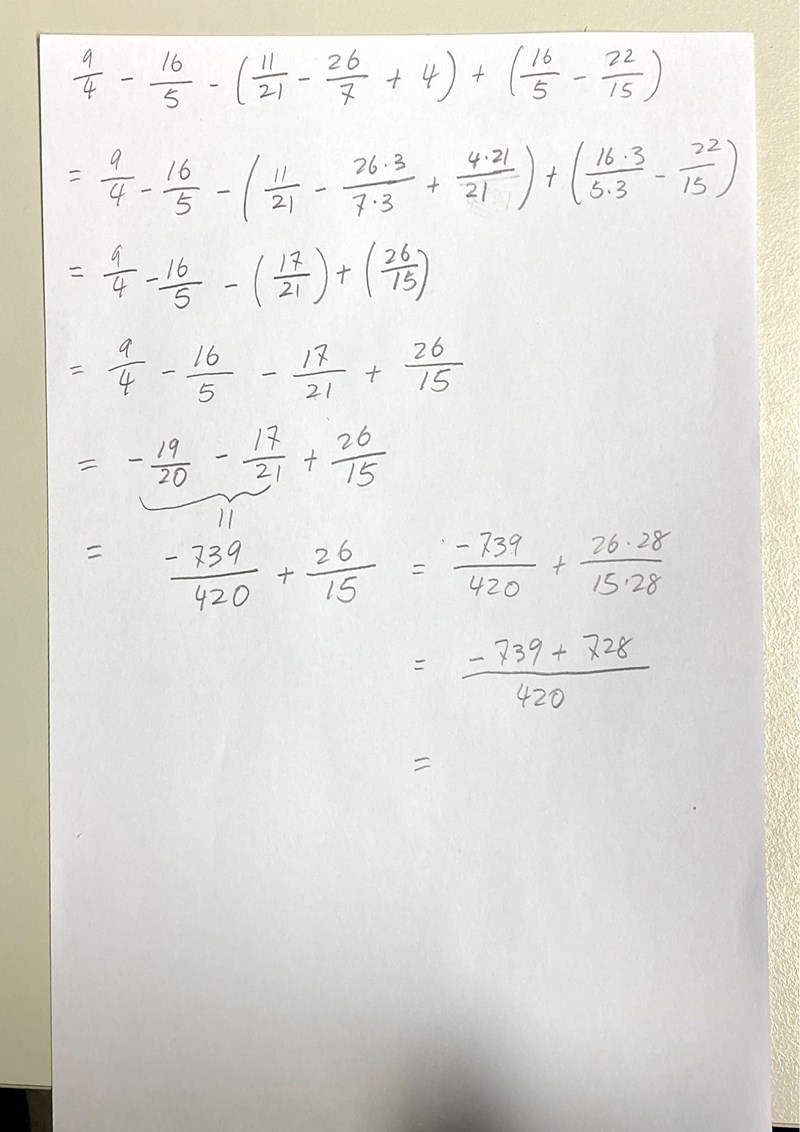 9/4 - 16/5 - (11/21 - 26/7 + 4) + (16/5 - 22/15)
= 9/4 - 16/5 - (11/21 - 26·3/7·3 + 4·21/21) + (16·3/5·3 - 22/15)
= 9/4 - 16/5 - (17/21) + (26/15)
= 9/4 - 16/5 - 17/21 + 26/15
= - 19/20 - 17/21 + 26/15
11
= -739/420 + 26/15 = -739/420 + 26·28/15·28
= -739 + 728/420
=